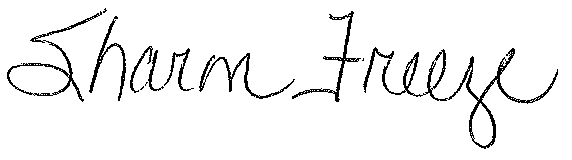 Sharon Freeze